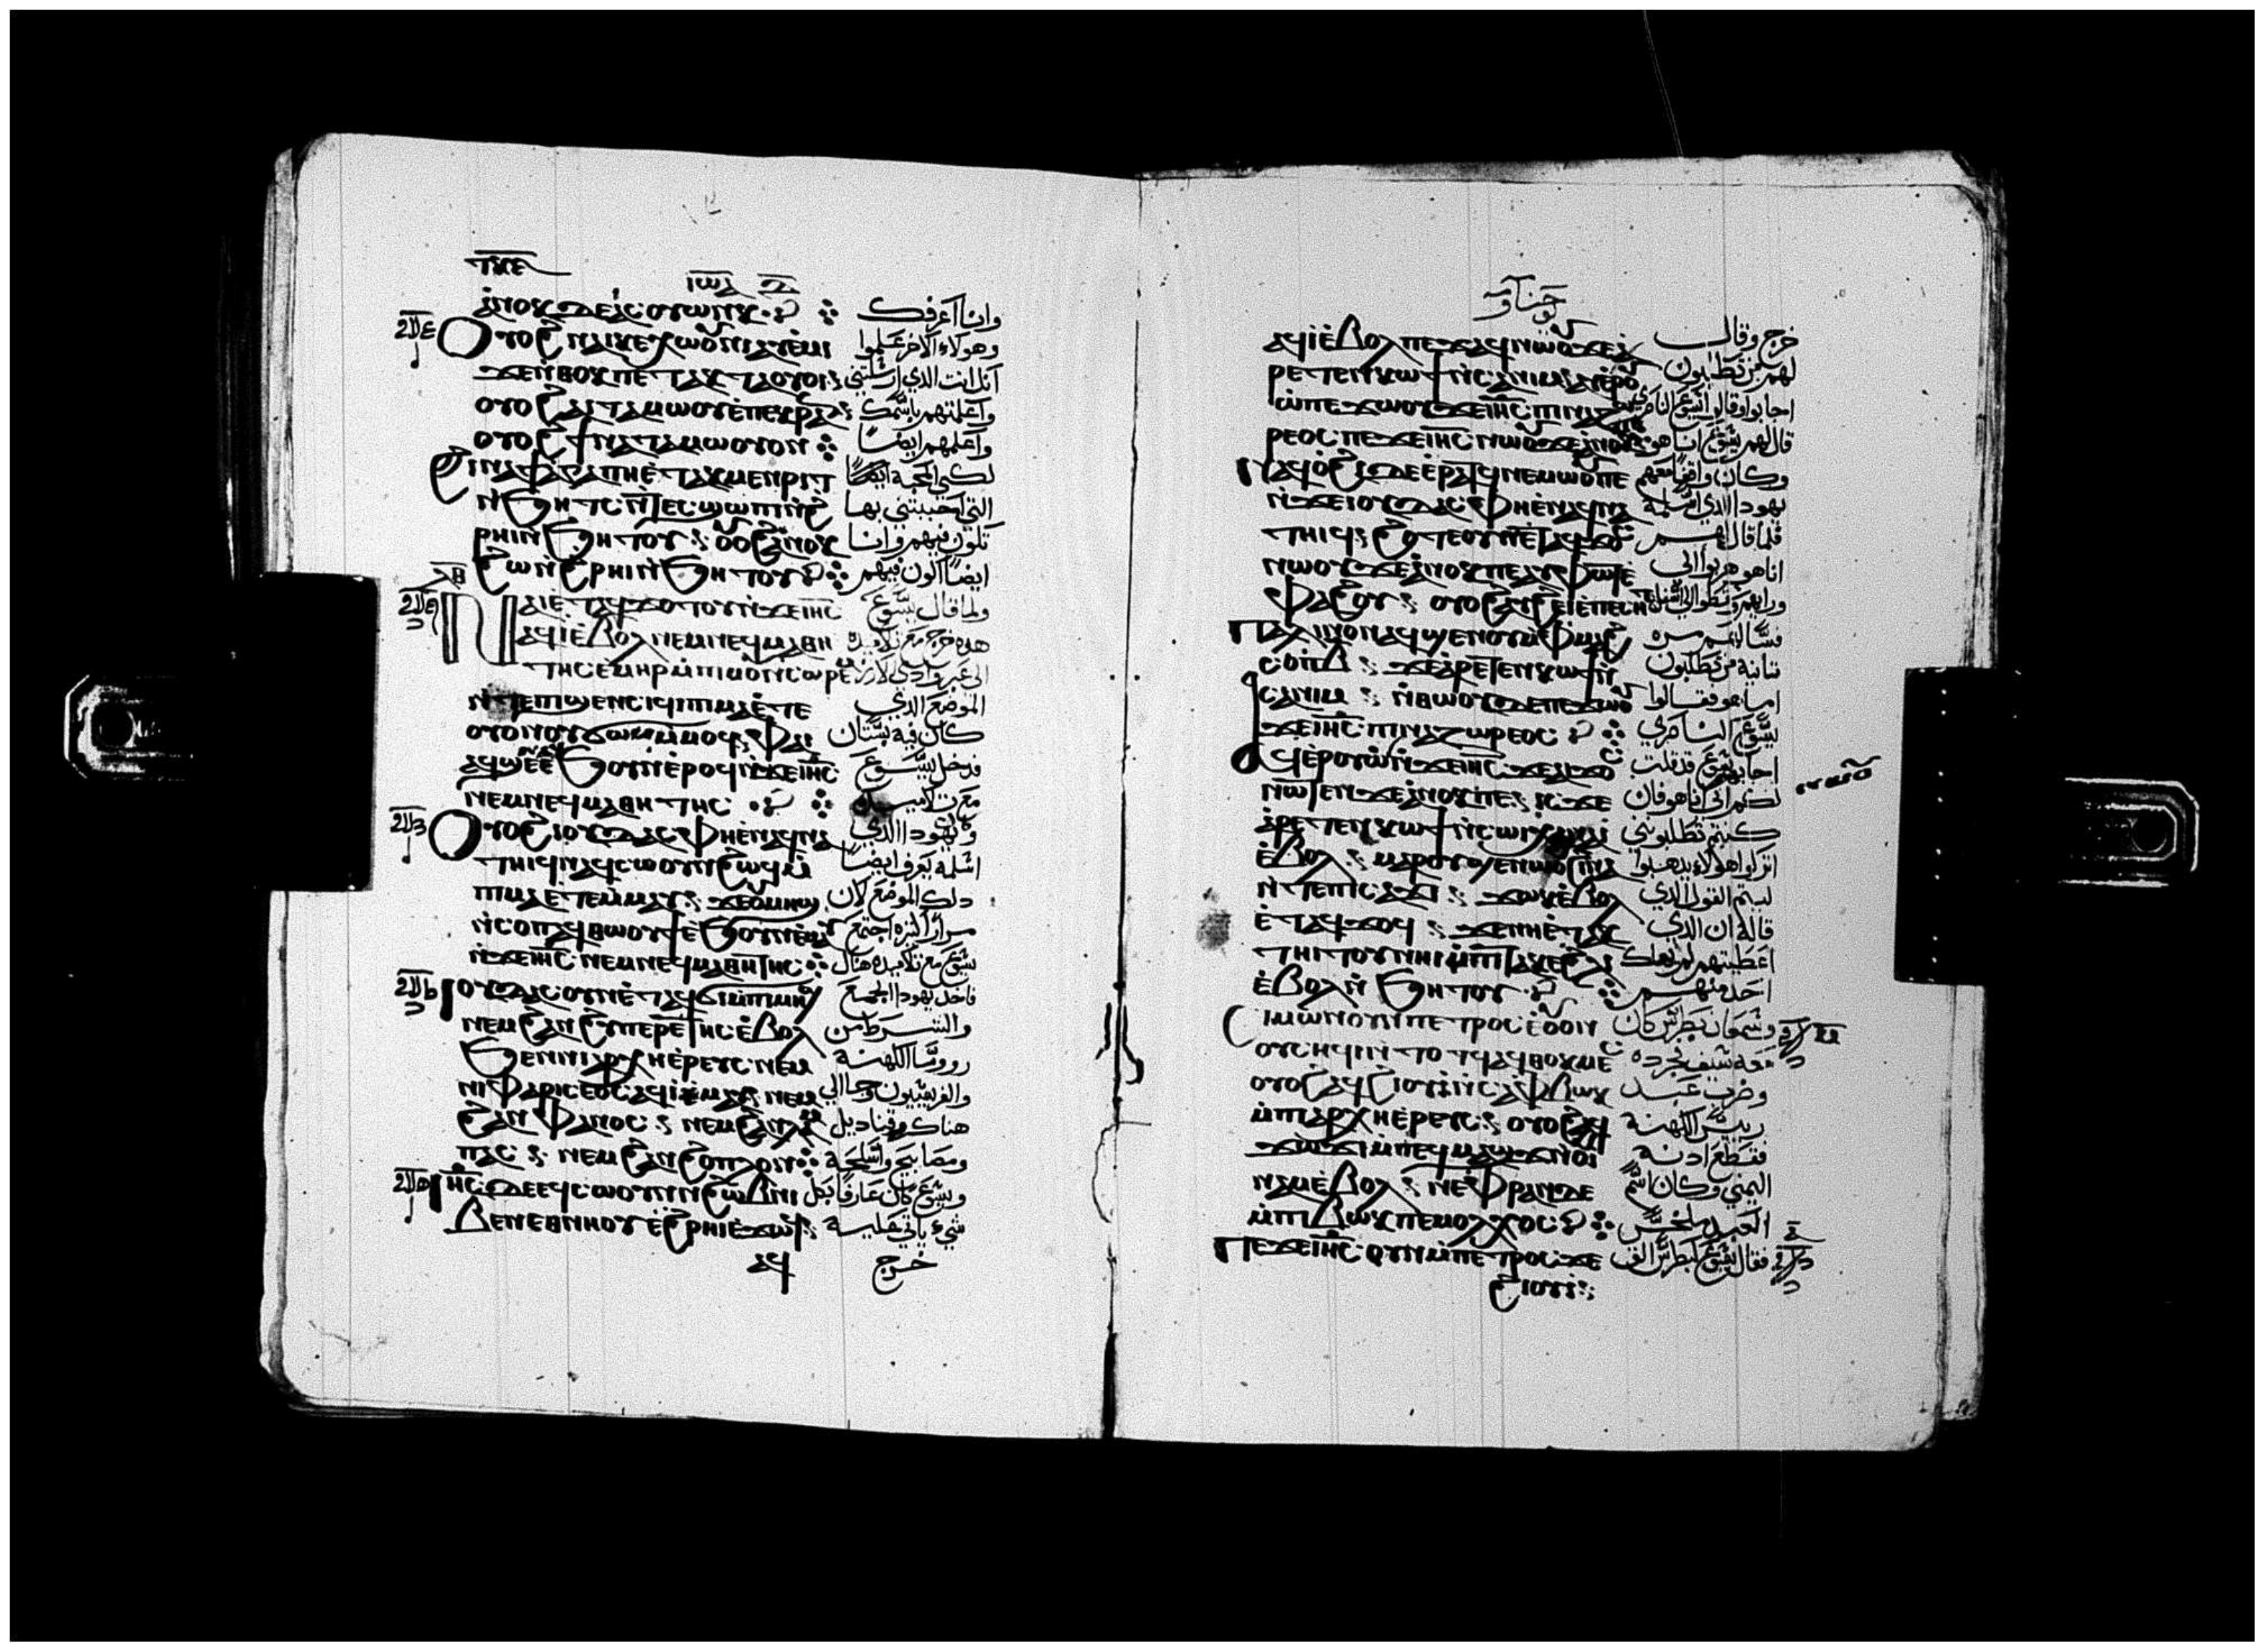 ⲓⲱⲁ
ⲁⲛⲟⲕ ⲇⲉ ⲁⲓⲥⲟⲩⲱⲛⲕ وانا اعرفك
ⲟⲩⲟϩ ⲛⲁⲓⲕⲉⲭⲱⲟⲩⲛⲓ ⲁⲩⲉⲙⲓ وهولاء الاخر علموا
ϫⲉ ⲛⲑⲟⲕ ⲡⲉⲧⲁⲕⲧⲁⲟⲩⲟⲓ انك انت الذي ارسلتني
ⲟⲩⲟϩ ⲁⲓⲧⲁⲙⲱⲟⲩ ⲉⲡⲉⲕⲣⲁⲛ واعلمتهم باسمك
ⲟⲩⲟϩ ϯⲛⲁⲧⲁⲙⲱⲟⲩ ⲟⲛ واعلمهم ايضا
ϩⲓⲛⲁ ϯⲁⲅⲁⲡⲏ ⲉⲧⲁⲕⲙⲉⲛⲣⲓⲧ
ⲛϧⲏⲧⲥ ⲛⲧⲉⲥϣⲱⲡⲓ ⲛϩ التي احببتني بها
ⲣⲏⲓ ⲛϧⲏⲧⲟⲩ ⲟⲩⲟϩ ⲁⲛⲟⲕ تكون فيهم وانا
ϩⲱ ⲛϩⲣⲏⲓ ⲛϧⲏⲧⲟⲩ ايضا اكون فيهم
ⲛⲁⲓ ⲉⲧⲁϥϫⲟⲧⲟⲩ ⲛϫⲉ ⲓⲏⲥ ولما قال يسوع
ⲁϥⲓ ⲉⲃⲟⲗ ⲛⲉⲙ ⲛⲉϥⲙⲁⲑⲏ هذه خرج مع تلاميذه
ⲧⲏⲥ ⲉⲙⲏⲣ ⲙⲡⲓⲙⲟⲩⲛⲥⲱⲣⲉⲙ الى عبر وادي الارز
ⲛⲧⲉ ⲡϣⲉⲛⲥⲓϥⲓ ⲡⲓⲙⲁ ⲉⲧⲉ الموضع الذي
ⲟⲩⲟⲛ ⲟⲩϭⲱⲙ ⲙⲙⲟϥ ⲫⲁⲓ كان فيه بستان
ⲁϥϣⲉ ⲉϧⲟⲩⲛ ⲉⲣⲟϥ ⲛϫⲉ ⲓⲏⲥ فدخل يسوع
ⲛⲉⲙ ⲛⲉϥⲙⲁⲑⲏⲧⲏⲥ مع تلاميذه
ⲟⲩⲟϩ ⲓⲟⲩⲇⲁⲥ ⲫⲏ ⲉⲛⲁϥⲛⲁ ويهودا الذي
ⲧⲏⲓϥ ⲛⲁϥⲥⲱⲟⲩⲛ ϩⲱϥ ⲙ اسلمه يعرف ايضا
ⲡⲓⲙⲁ ⲉⲧⲉⲙⲙⲁⲩ ϫⲉ ⲟⲩⲙⲏϣ دلك الموضع لان
ⲛⲥⲟⲡ ⲁϥⲑⲱⲟⲩϯ ⲉϧⲟⲩⲛ ⲉⲙⲁⲩ مرارا كثيره اجتمع
ⲛϫⲉ ⲓⲏⲥ ⲛⲉⲙ ⲛⲉϥⲙⲁⲑⲏⲧⲏⲥ يسوع مع تلاميذه هناك
ⲓⲟⲩⲇⲁⲥ ⲟⲩⲛ ⲉⲧⲁϥϭⲓ ⲙⲡⲓⲙⲏϣ فاخذ يهودا الجمع
ⲛⲉⲙ ϩⲁⲛϩⲩⲡⲉⲣⲉⲧⲏⲥ ⲉⲃⲟⲗ والشرط من
ϧⲉⲛ ⲛⲓⲁⲣⲭⲏⲉⲣⲉⲩⲥ ⲛⲉⲙ رووسا الكهنة
ⲛⲓⲫⲁⲣⲓⲥⲉⲟⲥ ⲁϥⲓ ⲉⲙⲁⲩ ⲛⲉⲙ والفريسيون وجا الى
ϩⲁⲛⲫⲁⲛⲟⲥ ⲛⲉⲙ ϩⲁⲛⲗⲁⲙ هناك وقناديل
ⲡⲁⲥ ⲛⲉⲙ ϩⲁⲛϩⲟⲡⲗⲟⲛ ومصابيح واسلحة
ⲓⲏⲥ ⲇⲉ ⲉϥⲥⲱⲟⲩⲛ ⲛϩⲱⲃ ⲛⲓ ويسوع كان عارفا بكل
ⲃⲉⲛ ⲉⲑⲛⲏⲟⲩ ⲉϩⲣⲏⲓ ⲉϫⲱϥ شيء ياتي عليه
ⲁϥ خرج
يوحنا
ⲁϥⲓ ⲉⲃⲟⲗ ⲡⲉϫⲁϥ ⲛⲱⲟⲩ ϫⲉ ⲁ خرج وقال
ⲣⲉⲧⲉⲛⲕⲱϯ ⲛⲥⲁ ⲛⲓⲙ ⲁⲩⲉⲣⲟⲩ لهم من تطلبون
ⲱ ⲡⲉϫⲱⲟⲩ ϫⲉ ⲓⲏⲥ ⲡⲓⲛⲁⲍⲱ
ⲣⲉⲟⲥ ⲡⲉϫⲉ ⲓⲏⲥ ⲛⲱⲟⲩ ϫⲉ ⲁⲛⲟⲕ ⲡⲉ قال لهم يسوع انا هو
ⲛⲁϥⲟϩⲓ ⲇⲉ ⲉⲣⲁⲧϥ ⲛⲉⲙⲱⲟⲩ ⲡⲉ وكان واقفا معهم
ⲛϫⲉ ⲓⲟⲩⲇⲁⲥ ⲫⲏ ⲉⲛⲁϥⲛⲁ يهودا الذي اسلمه
ⲧⲏⲓϥ ϩⲟⲧⲉ ⲟⲩⲛ ⲉⲧⲁϥϫⲟⲥ فلما قال لهم
ⲛⲱⲟⲩ ϫⲉ ⲁⲛⲟⲕ ⲡⲉ ⲁⲩⲫⲱⲧ ⲉ انا هو هربوا الى
ⲫⲁϩⲟⲩ ⲟⲩⲟϩ ⲁⲩϩⲉⲓ ⲉⲡⲉⲥⲏⲧ
ⲡⲁⲗⲓⲛ ⲟⲛ ⲁϥϣⲉⲛⲟⲩ ⲙⲫⲙⲁϩ فسالهم مره
ⲥⲟⲡ ⲃ ϫⲉ ⲁⲣⲉⲧⲉⲛⲕⲱϯ ⲛ ثانية من تطلبون
ⲥⲁ ⲛⲓⲙ ⲛⲑⲱⲟⲩ ⲇⲉ ⲡⲉϫⲱⲟⲩ اما هو فقالوا
ϫⲉ ⲓⲏⲥ ⲡⲓⲛⲁⲍⲱⲣⲉⲟⲥ يسوع الناصري
ⲁϥⲉⲣⲟⲩⲱ ⲛϫⲉ ⲓⲏⲥ ϫⲉ ⲁⲓϫⲟⲥ اجابهم يسوع قد قلت
ⲛⲱⲧⲉⲛ ϫⲉ ⲁⲛⲟⲕ ⲡⲉ ⲓⲥϫⲉ لكم اني انا هو فان
ⲁⲣⲉⲧⲉⲛⲕⲱϯ ⲛⲥⲱⲓ ⲭⲁ ⲛⲁⲓ كنتم تطلبوني
ⲉⲃⲟⲗ ⲙⲁⲣⲟⲩϣⲉⲛⲱⲟⲩ ϩⲓⲛⲁ اتركوا هولاء يذهبوا
ⲛⲧⲉ ⲡⲓⲥⲁϫⲓ ϫⲱⲕ ⲉⲃⲟⲗ ليتم القول الذي
ⲉⲧⲁϥϫⲟϥ ϫⲉ ⲛⲏ ⲉⲧⲁⲕ قاله ان الذي
ⲧⲏⲓⲧⲟⲩ ⲛⲏⲓ ⲙⲡⲓⲧⲁⲕⲉ ϩⲗⲓ اعطيتهم لي لم يهلك
ⲉⲃⲟⲗ ⲛϧⲏⲧⲟⲩ احد منهم
ⲥⲓⲙⲱⲛ ⲟⲩⲛ ⲡⲉⲧⲣⲟⲥ ⲉⲟⲩⲟⲛ وسمعان بطرس كان
ⲟⲩⲥⲏϥⲓ ⲛⲧⲟⲧϥ ⲁϥⲑⲟⲕⲙⲉⲥ معه سيف فجرده
ⲟⲩⲟϩ ⲁϥϩⲓⲟⲩⲓ ⲛⲥⲁ ⲫⲃⲱⲕ وضرب عبد
ⲙⲡⲓⲁⲣⲭⲏⲉⲣⲉⲩⲥ ⲟⲩⲟϩ ⲁϥ رييس الكهنة
ϫⲱϫⲓ ⲙⲡⲉϥⲙⲁϣϫ ⲛⲟⲩⲓ فقطع ادنه
ⲛⲁⲙ ⲉⲃⲟⲗ ⲛⲉ ⲫⲣⲁⲛ ⲇⲉ اليمني وكان اسم
ⲙⲡⲓⲃⲱⲕ ⲡⲉ ⲙⲟⲗⲭⲟⲥ العبد ملخس
ⲡⲉϫⲉ ⲓⲏⲥ ⲟⲩⲛ ⲙⲡⲉⲧⲣⲟⲥ ϫⲉ فقال يسوع لبطرس الق
ϩⲓⲟⲩⲓ